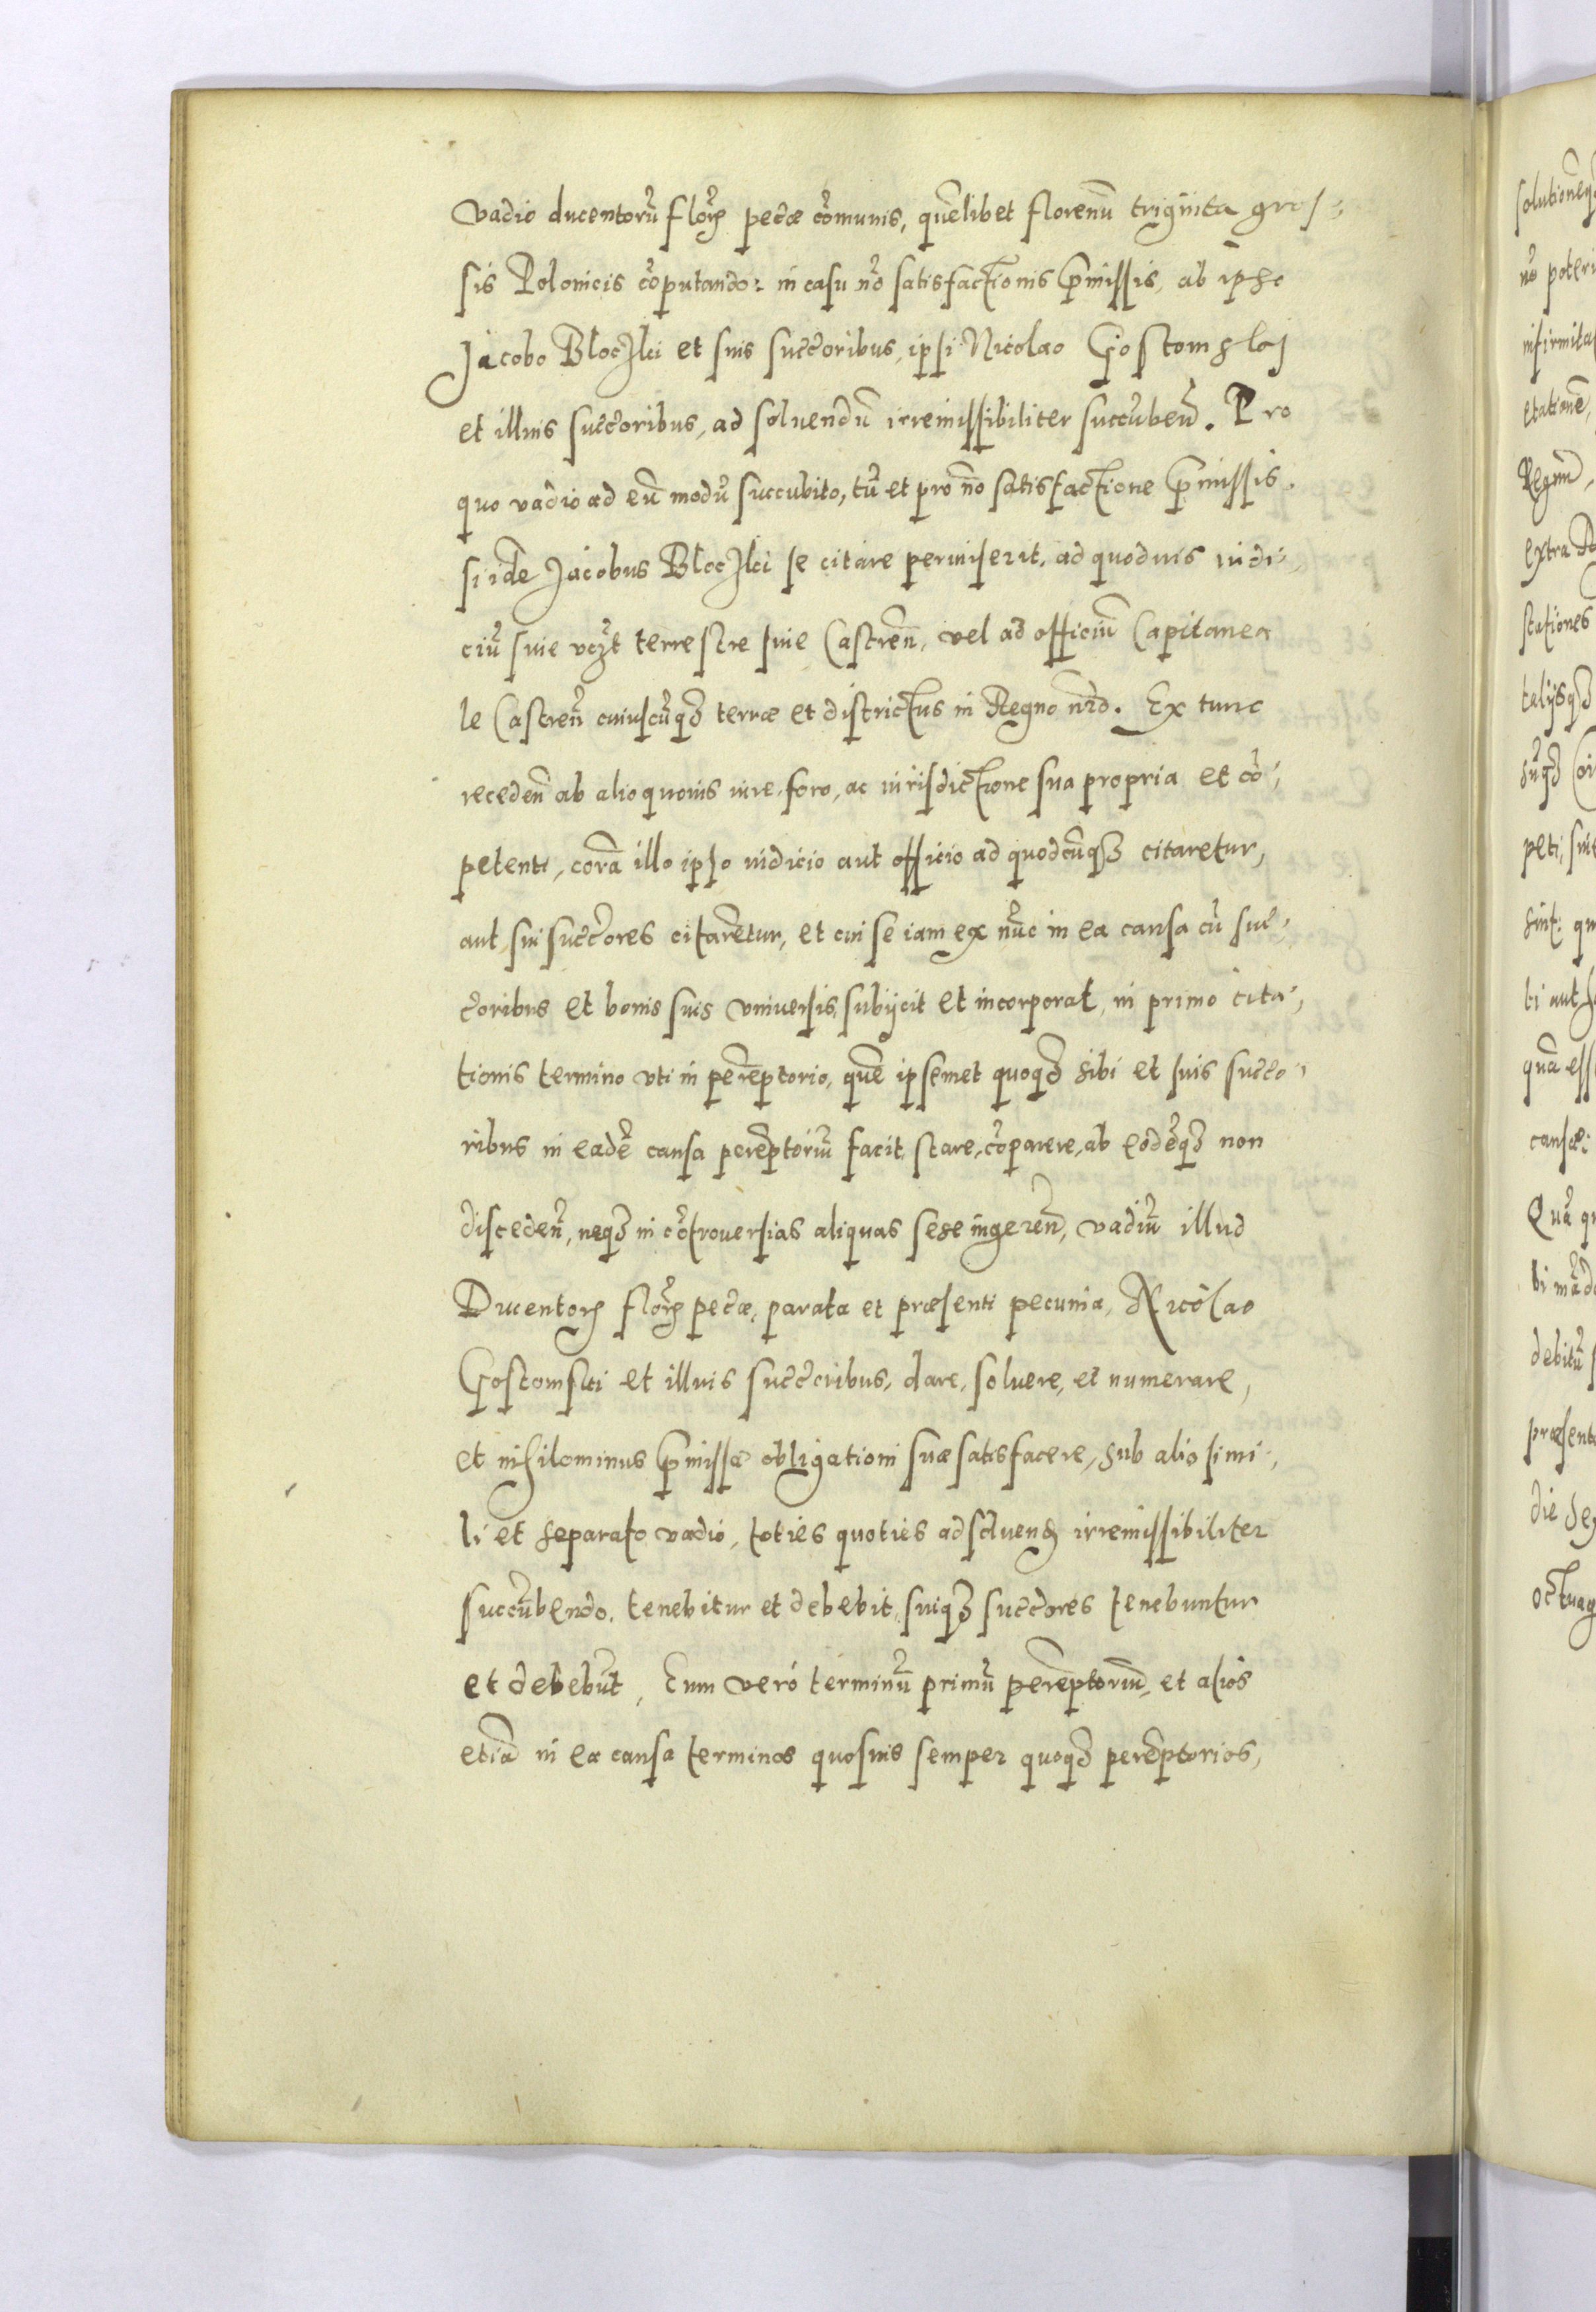 vadio ducentorũ florꝝ pecũæ cõmunis, quẽlibet florenũ triginta gros-
sis Polonicis cõputando: in casu nõ satisfactionis p̃missis, ab ipso
Jacobo Bloczki et suis succẽoribus, ipsi Nicolao Gostomskj
et illius succẽoribus, ad soluendũ irremissibiliter succubeñ. Pro
quo vadio ad eũ modũ succubito, tũ et pro nõ satisfactione p̃missis.
si idẽ Jacobus Bloczki se citare permiserit, ad quoduis iudi-
ciũ siue vcz̃t terrestre siue Castreñ, vel ad officiũ Capitanea
le Castreñ cuiuscũqꝫ terræ et districtus in Regno nr̃o. Ex tunc
recedeñ ab alio quouis iure, foro, ac iurisdictione sua propria et cõ-
petenti, corã illo ipso iudicio aut officio ad quodcũqꝫ citaretur,
aut sui succẽores citarẽtur, et cui se iam ex nũc in ea causa cũ suc-
cẽoribus et bonis suis vniuersis, subijcit et incorporat, in primo cita-
tionis termino vti in perẽptorio, quẽ ipsemet quoqꝫ sibi et suis succẽo-
ribus in eadẽ causa perẽptoriũ facit, stare, cõparere, ab eodẽqꝫ non
discedeñ, neqꝫ in cõtrouersias aliquas sese ingereñ, vadiũ illud
Ducentorꝝ florꝝ pecũæ, parata et præsenti pecunia, Nicolao
Gostomski et illius succẽoribus, dare, soluere, et numerare,
et nihilominus p̃missæ obligationi suæ satisfacere, sub alio simi-
li et separato vadio, toties quoties ad soluenđ irremissibiliter
succũbendo, tenebitur et debebit, suiqꝫ succẽores tenebuntur
et debebũt, Eum verò terminũ primũ perẽptoriũ, et alios
etiã in ea causa terminos quosuis semper quoqꝫ perẽptorios,
solutionẽq
nõ poteri
infirmita
etationẽ,
Regnũ,
extra
stationes
talijsqꝫ
peti, siue
sint: qu
ti aut
quã ess
causæ:
Quã qu
bi mãd
debitũ
præsent
die
octuag